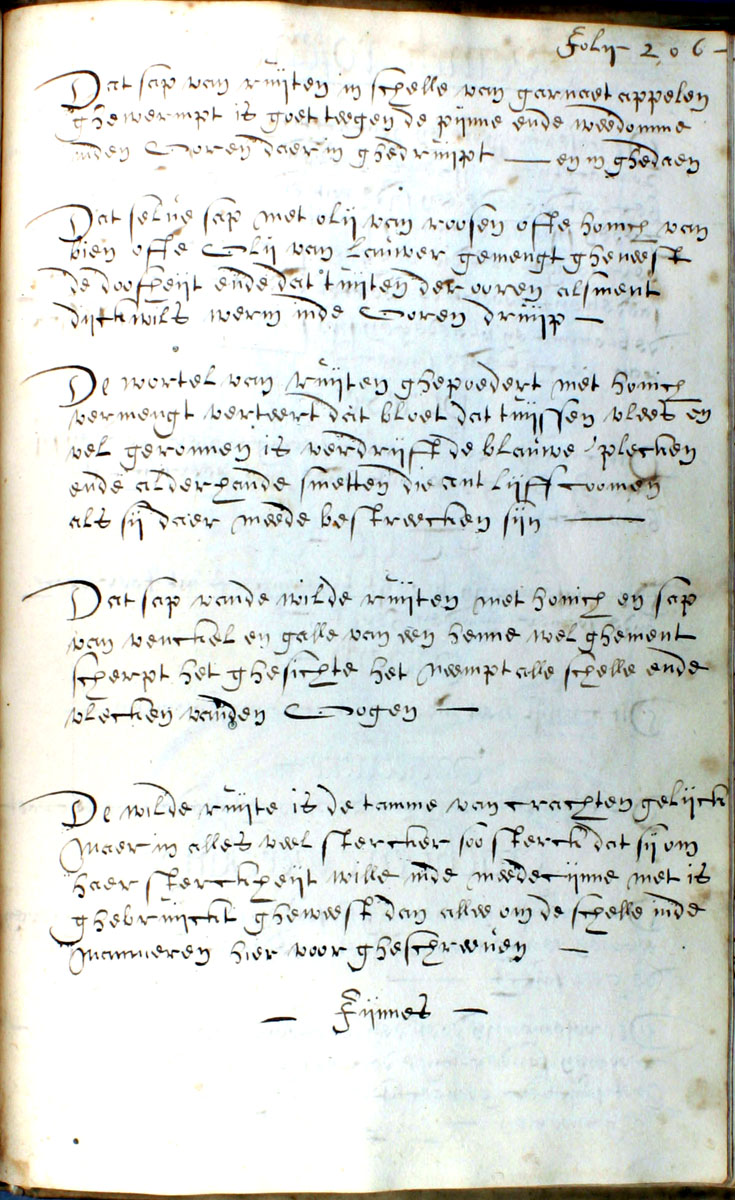 Folij 206
Dat sap van ruijten in schelle van garnaet appelen
ghewermpt is goet teegen de pijnne ende weedomme
inden Ooren daer in ghedruijpt — en in ghedaen
Dat selve sap met olij van roosen ofte honich van
bien ofte Olij van lauwer gemengt gheneest
de doofheijt ende dat tuijten der ooren alsment
dijckwils werm inde Ooren druijp —
De wortel van ruijten ghepoedert met honich
vermengt verteert dat bloet dat tuijssen vlees en
vel geronnen is verdrijft de blauwe plecken
ende alderhande smetten die ant lijff coomen
als sij daer meede bestreecken sijn —
Dat sap vande wilde ruijten met honich en sap
van venckel en galle van een henne wel ghement
scherpt het ghesichte het neempt alle schelle ende
vlecken vanden Oogen —
De wilde ruijte is de tamme van crachten gelijck
maer in alles veel stercker soo sterck dat sij om
haer sterckheijt wille inde meedecijnne niet is
ghebruijckt gheweest dan allee om de schelle inde
mannieren hier voor ghescreeven —
— Fijnnes —